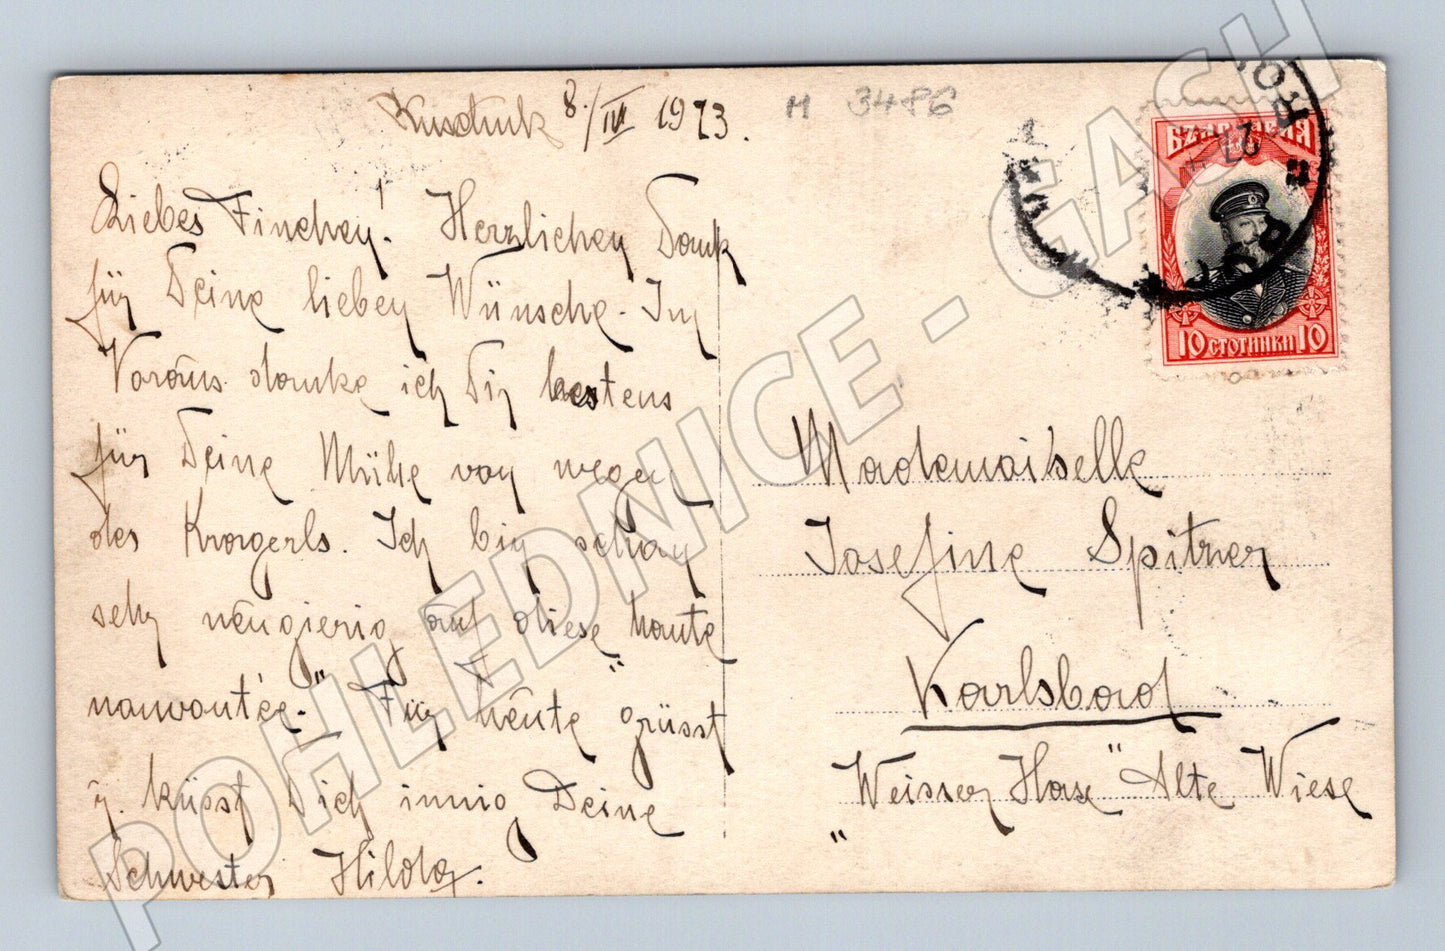 Rustschuk 8./IV 1913.
M 3486
Liebes Finchen! Herzlichen Dank
für Deine lieben Wünsche. Im
Voraus danke ich Dir bestens
für Deine Mühe von wegen
des Kragerls. Ich bin schon
sehr neugierig auf diese "haute
nouvautée." Für heute grüsst
u. küsst Dich innig Deine
Schwester Hilda.
БЪЛГАРИЯ
10 СТОТИНКИ 10
Mademoiselle
Josefine Spitzer
Karlsbad
"Weisser Hase" Alte Wiese
POHLEDNICE - GASH